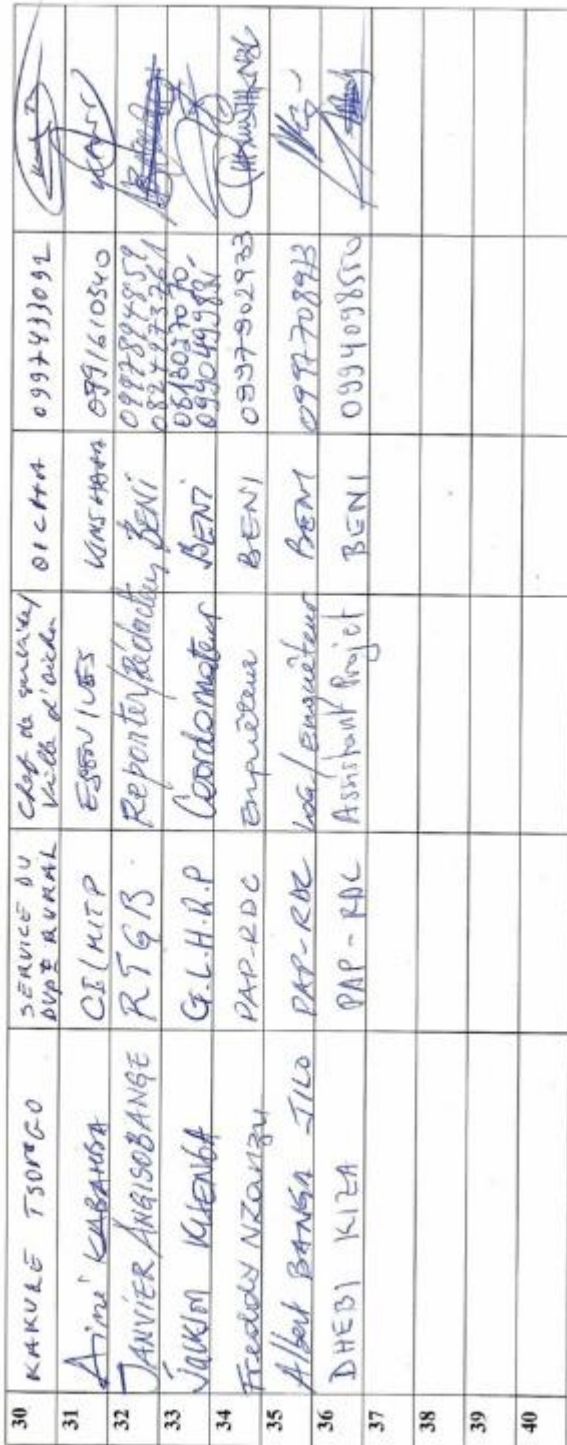 30 KAKULE TSONGO SERVICE DU DVPT RURAL Chef de Ville d'Oicha OICHA 0997433092
31 Aimé KABAMBA CI/MITP KINSHASA 0991610540
32 JANVIER ANGISOBANGE RTGB Reporter/Rédacteur BENI 0997894859
33 G.L.H.R.P Coordonateur BENI 0990499881
34 Freddy NZANZU PAP-RDC Enquêteur BENI 0997902933
35 Albert BANGA JILO PAP-RDC Log/Enquêteur BENI 0997708923
36 DHEBI KIZA PAP-RDC Assistant Projet BENI 0994098550
37
38
39
40